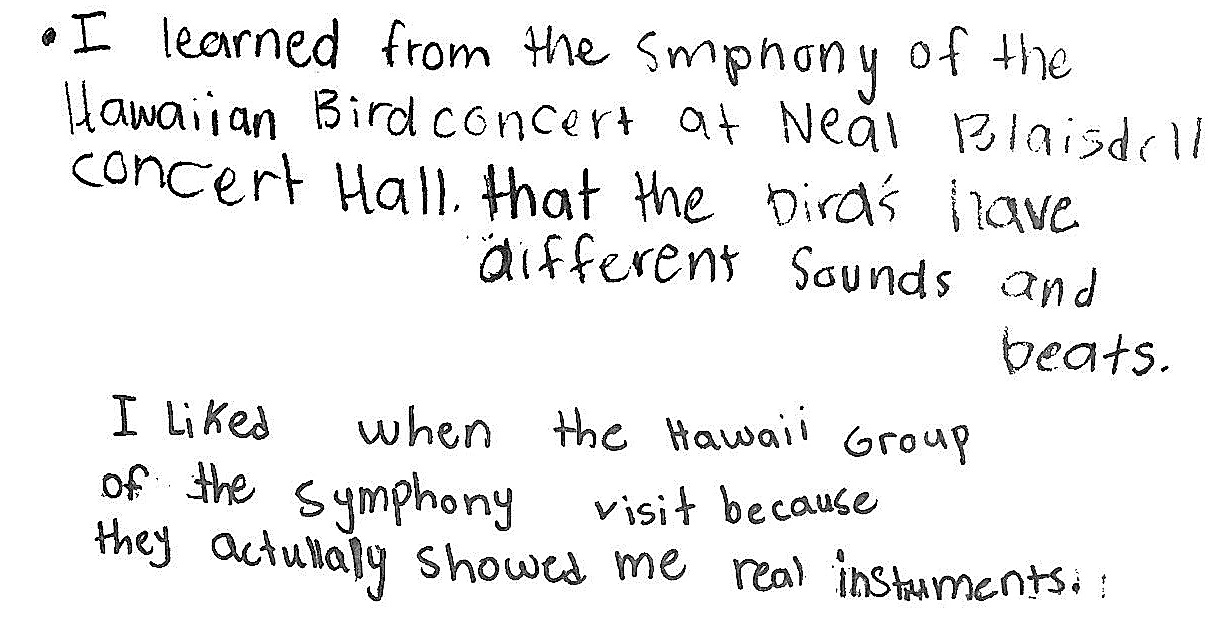 • I learned from the Smphony of the
Hawaiian Bird concert at Neal Blaisdell
concert Hall. that the bird's have
different sounds and
beats.
I Liked when the Hawaii Group
of the symphony visit because
they actullaly showed me real instuments.